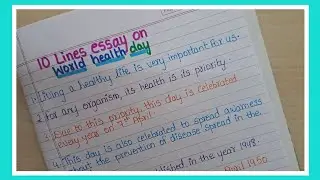 10 Lines essay on
world health day
1. Living a healthy life is very important for us.
2. For any organism, its health is its priority.
3. Due to this priority, this day is celebrated
every year on 7th April.
4. This day is also celebrated to spread awarness
about the prevention of disease spread in the
in the year 1948.
April 1950